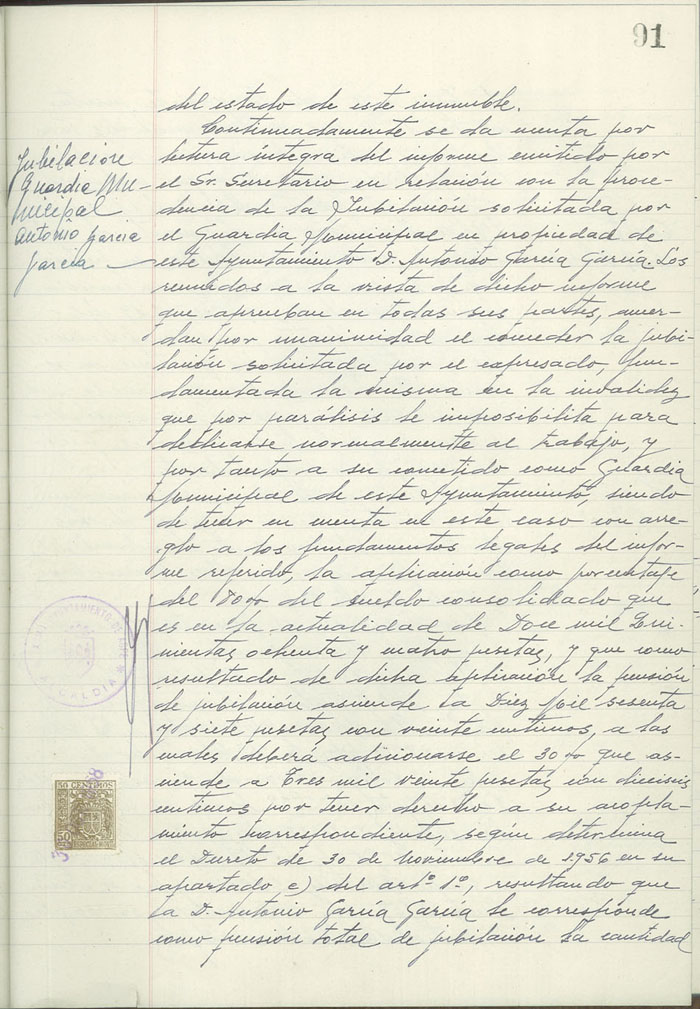 91
del estado de este inmueble.
Continuadamente se da cuenta por
lectura íntegra del informe emitido por
el Sr. Secretario en relación con la proce-
dencia de la Jubilación solicitada por
el Guardia Municipal en propiedad de
este Ayuntamiento D. Antonio García García. Los
reunidos a la vista de dicho informe
que aprueban en todas sus partes, acuer-
dan por unanimidad el conceder la jubi-
lación solicitada por el expresado, fun-
damentada la misma en la invalidez
que por parálisis le imposibilita para
dedicarse normalmente al trabajo, y
por tanto a su cometido como Guardia
Municipal de este Ayuntamiento, siendo
de tener en cuenta en este caso con arre-
glo a los fundamentos legales del infor-
me referido, la aplicación como porcentaje
del 80% del sueldo consolidado que
es en la actualidad de Doce mil Qui-
nientas ochenta y cuatro pesetas, y que como
resultado de dicha aplicación la pensión
de jubilación asciende la Diez Mil sesenta
y siete pesetas con veinte centimos, a las
cuales deberá adicionarse el 30% que as-
ciende a Tres mil veinte pesetas con dieciseis
centimos por tener derecho a su acopla-
miento correspondiente, según determina
el Decreto de 30 de Noviembre de 1956 en su
apartado c) del artº 1º, resultando que
la D. Antonio García García le corresponde
como pensión total de jubilación la cantidad
Jubilación
Guardia Mu-
nicipal
Antonio Garcia
Garcia
AYUNTAMIENTO DE
ALCALDIA
50 CENTIMOS
50